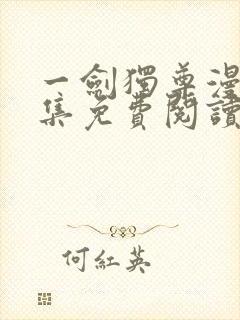 一劍獨尊漫
集免費閱讀
何紅英